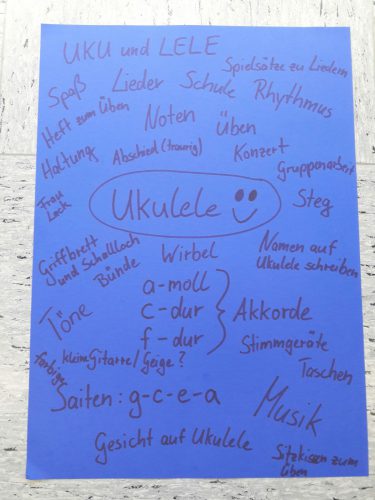 UKU und LELE
Spielsätze zu Liedern
Spaß
Lieder
Schule
Rhythmus
Heft zum Üben
Noten
Üben
Haltung
Abschied (traurig)
Konzert
Gruppenarbeit
Frau
Lack
Ukulele
Steg
Griffbrett
und Schallloch
Wirbel
Namen auf
Ukulele schreiben
Bünde
a-moll
Töne
c-dur
Akkorde
f-dur
Stimmgeräte
kleine Gitarre/Geige?
Taschen
farbige
Saiten: g-c-e-a
Musik
Gesicht auf Ukulele
Sitzkissen zum
Üben